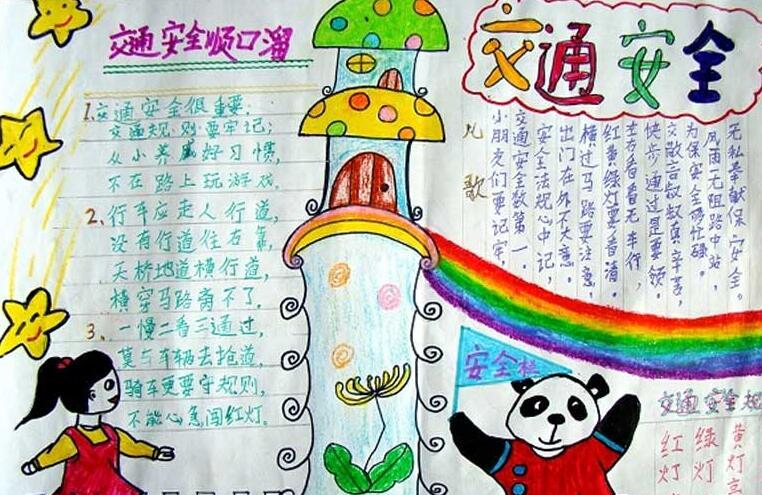 交通安全顺口溜
1.交通安全很重要,
交通规则要牢记;
从小养成好习惯,
不在路上玩游戏.
2、行车应走人行道,
没有行道住右靠,
天桥地道横行道,
横穿马路离不了.
3、一慢二看三通过,
莫与车辆去抢道,
骑车更要守规则,
不能心急闯红灯.
交通安全
儿歌
小朋友们要记牢,
交通安全数第一.
安全法规心中记,
出门在外不大意.
横过马路要注意,
红黄绿灯要看清.
左右看看无车行,
快步通过是要领.
交警叔叔真辛苦,
为保安全多忙碌.
风雨无阻路中站,
无私奉献保安全.
安全
交通安全规
红灯
绿灯
黄灯